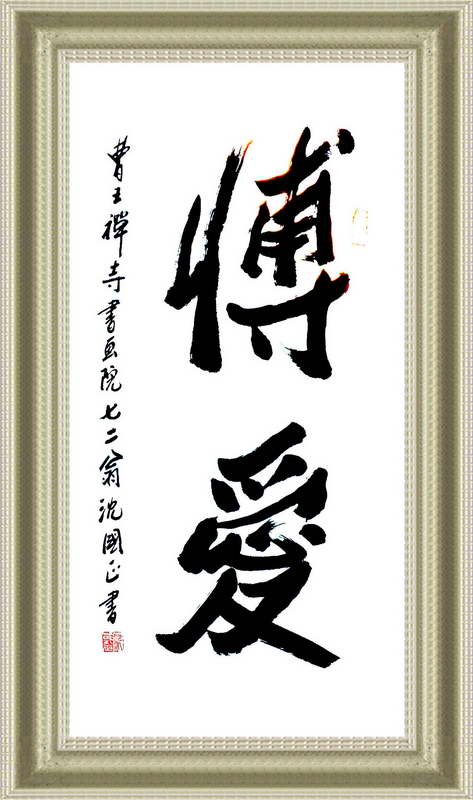 博愛
曹王禅寺書画院七二翁沈國正書